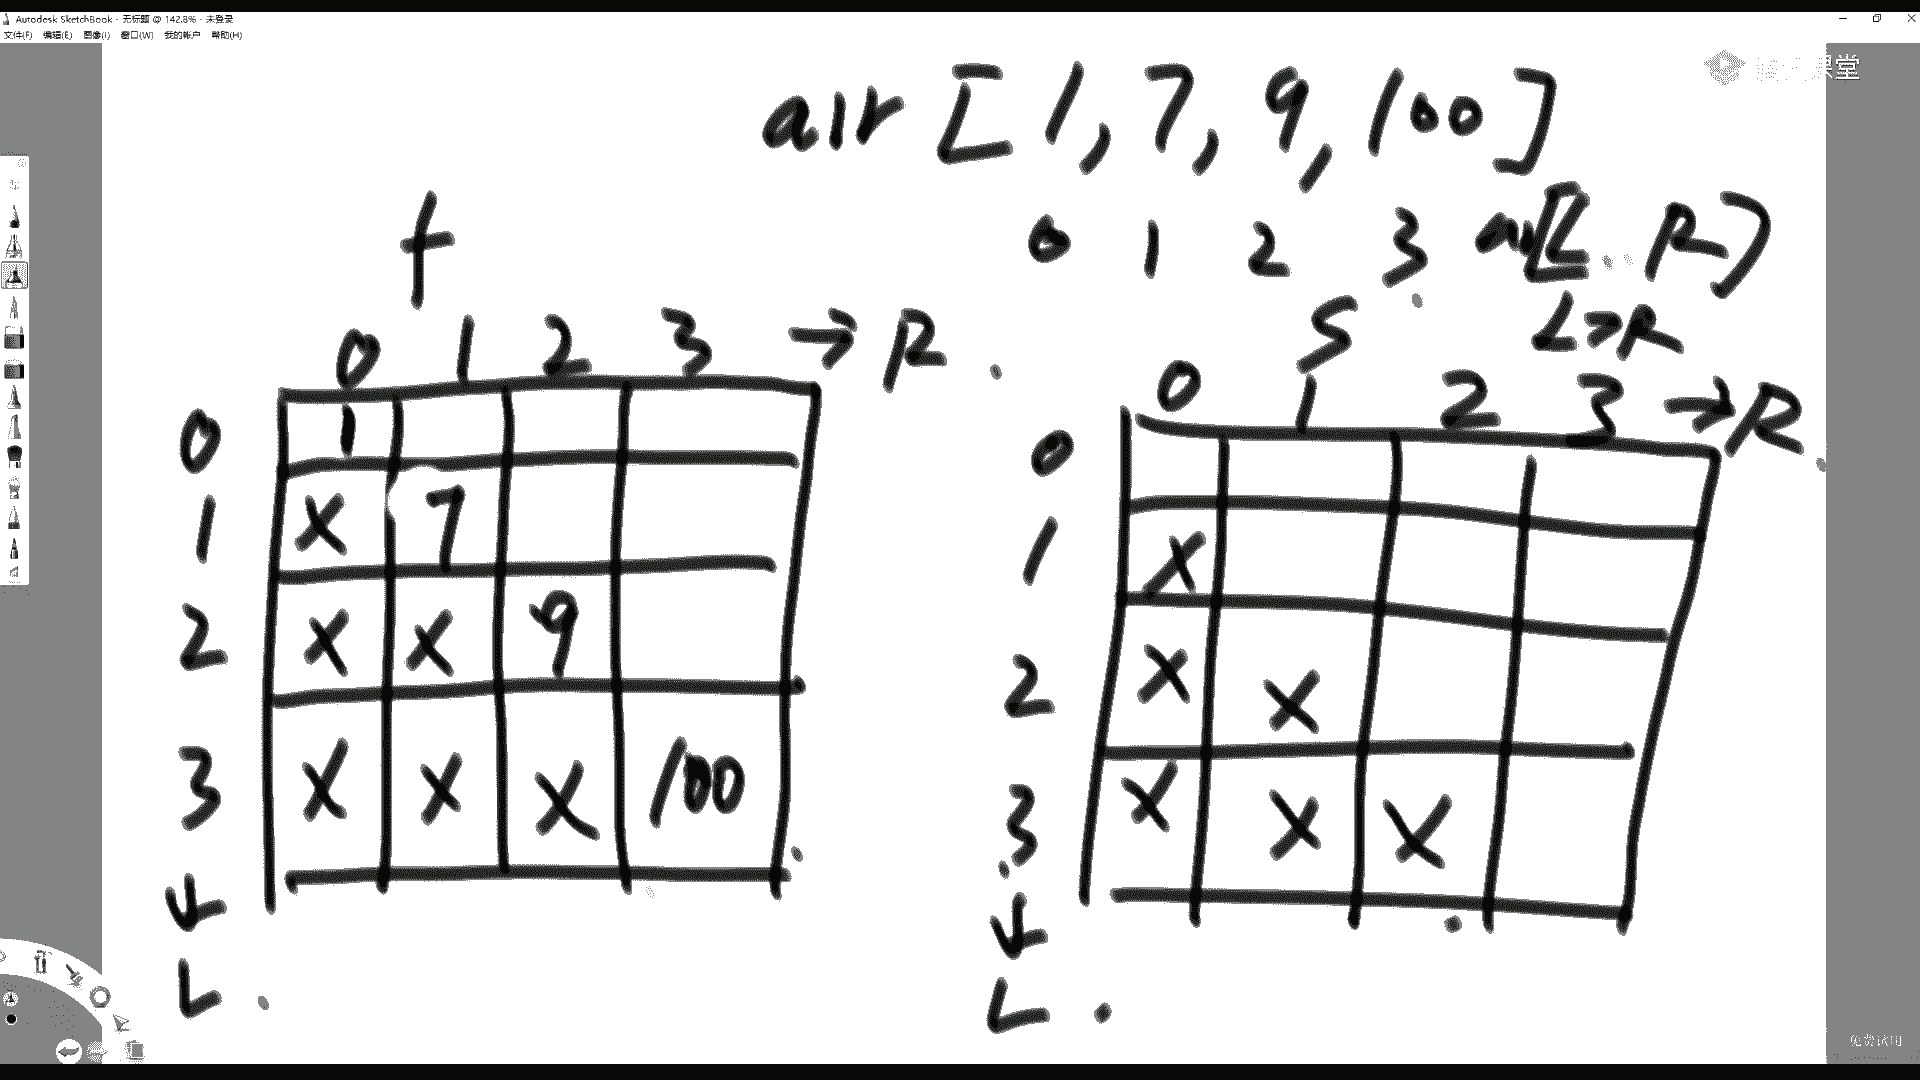 Autodesk SketchBook - 无标题 @ 142.8% - 未登录
文件(F) 编辑(E) 图像(I) 窗口(W) 我的帐户 帮助(H)
课堂
arr [1, 7, 9, 100]
0 1 2 3 arr[L..R]
L>R
f
0 1 2 3 → R
0 1
1 X 7
2 X X 9
3 X X X 100
↓
L
S
0 1 2 3 → R
0
1 X
2 X X
3 X X X
↓
L
免费试用